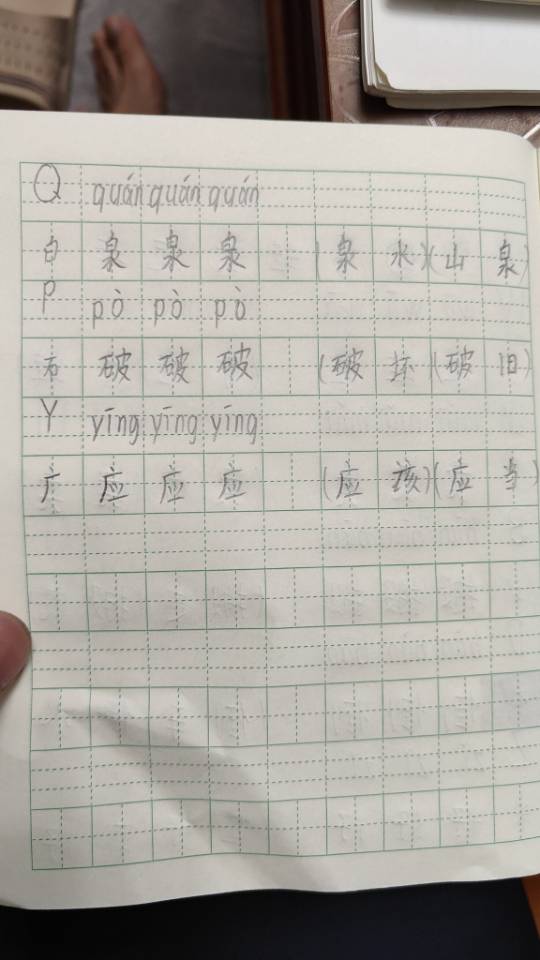 Q quán quán quán
白 泉 泉 泉 (泉 水)(山 泉)
P pò pò pò
石 破 破 破 (破 坏)(破 旧)
Y yīng yīng yīng
广 应 应 应 (应 该)(应 当)